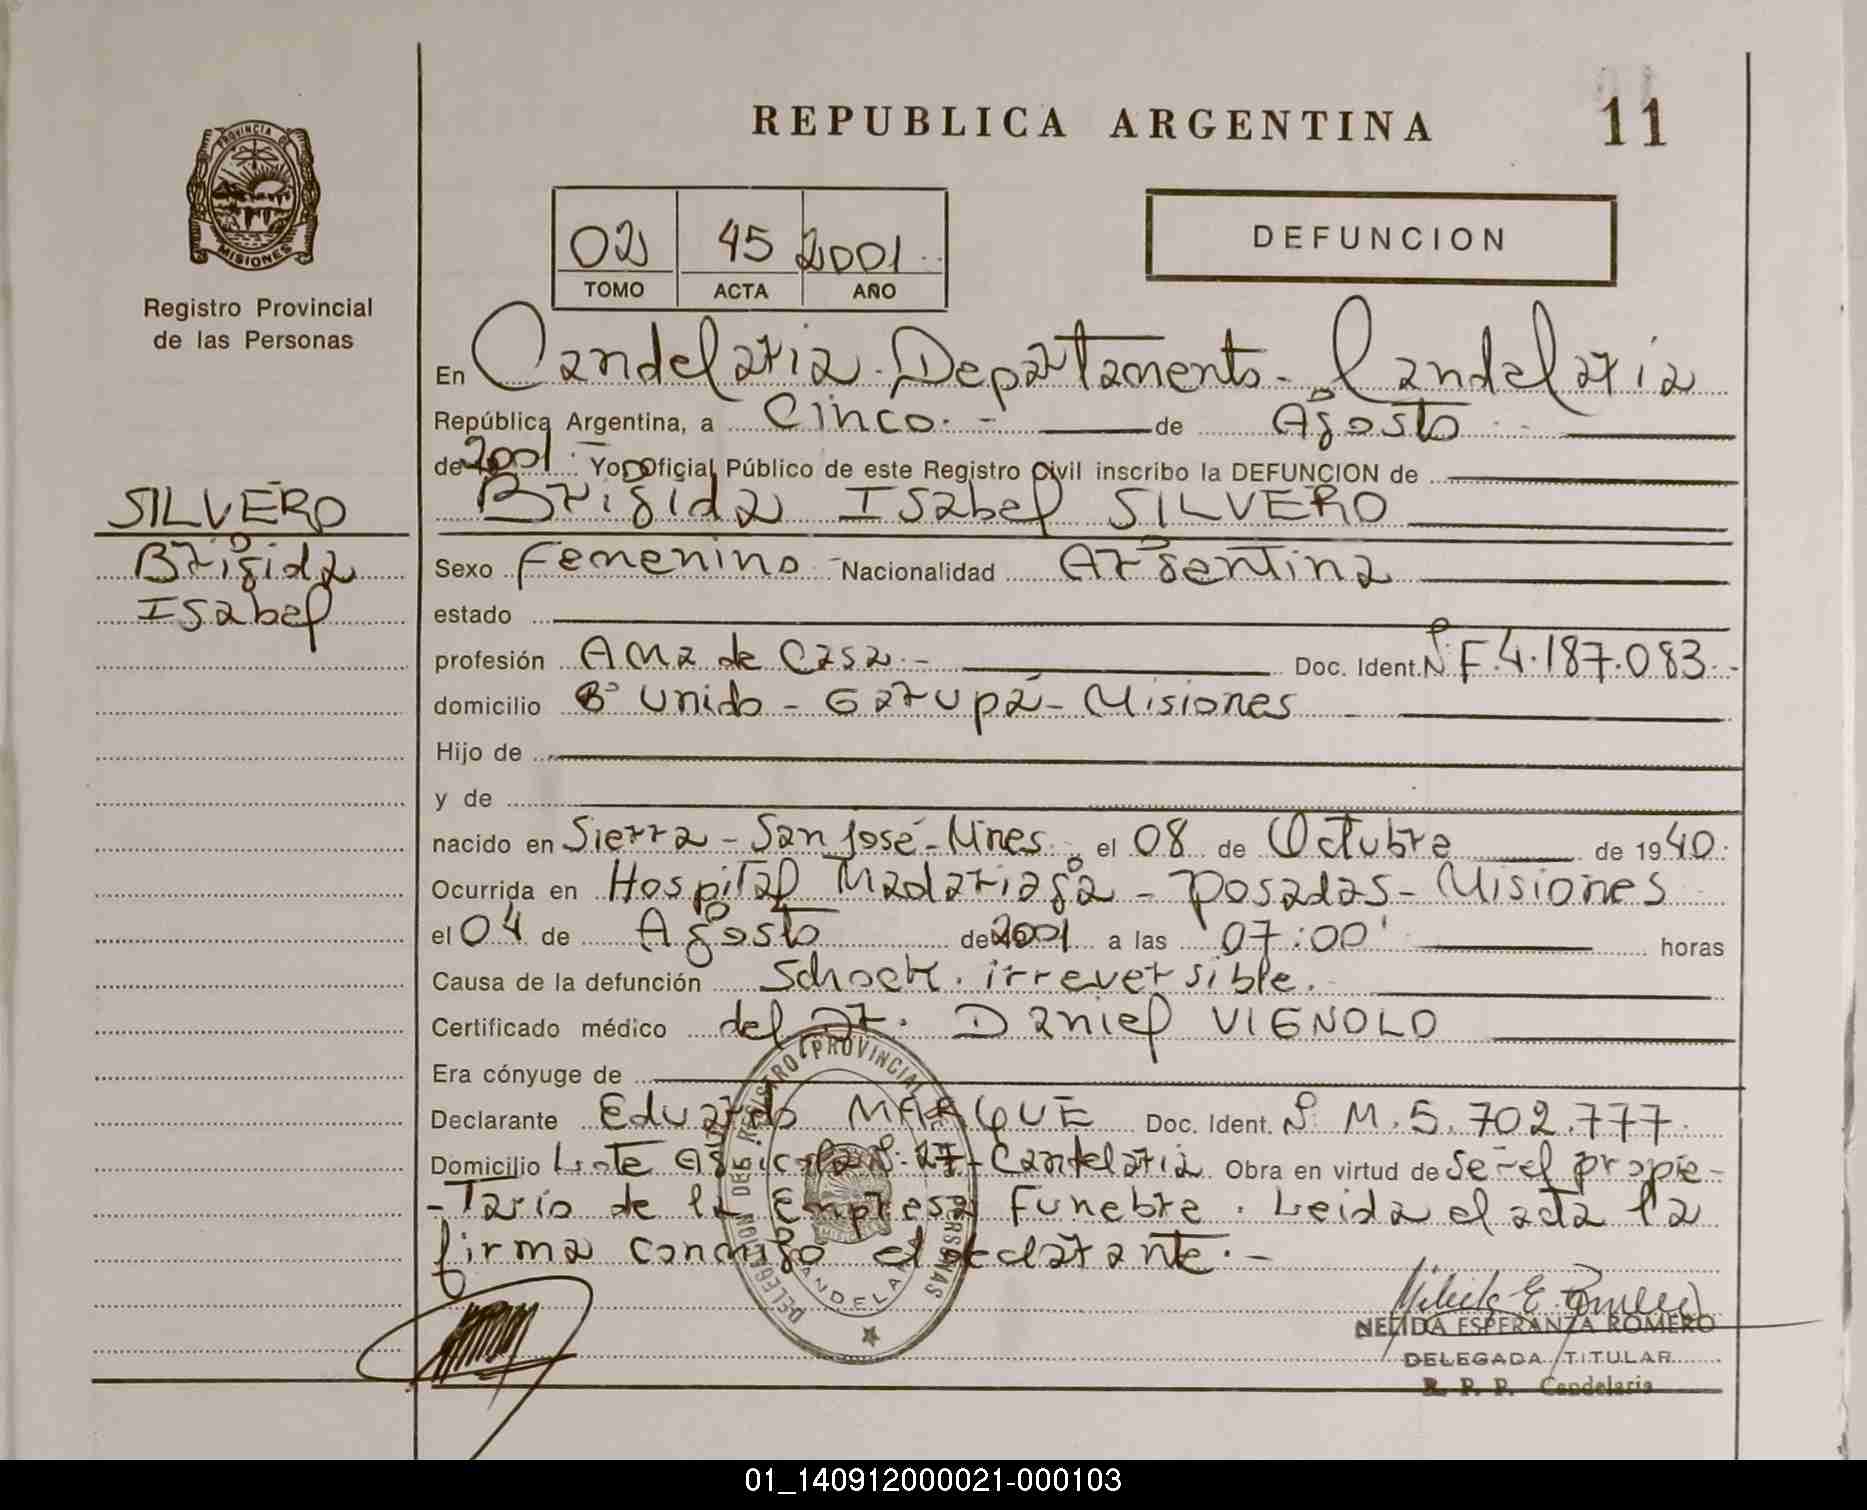 REPUBLICA ARGENTINA
11
PROVINCIA DE
MISIONES
Registro Provincial
de las Personas
02 45 2001
TOMO ACTA AÑO
DEFUNCION
En Candelaria - Departamento - Candelaria
República Argentina, a Cinco.- de Agosto
de 2001 Yo, Oficial Público de este Registro Civil inscribo la DEFUNCION de
SILVERO
Brigida Isabel SILVERO
Brigida
Sexo Femenino - Nacionalidad Argentina
Isabel
estado
profesión Ama de Casa.- Doc. Ident. Nº F.4.187.083.-
domicilio Bº Unido - Garupá - Misiones
Hijo de
y de
nacido en Sierra - San José - Mnes. el 08 de Octubre de 1940.
Ocurrida en Hospital Madariaga - Posadas - Misiones
el 04 de Agosto de 2001 a las 07:00' horas
Causa de la defunción Schock irreversible.
Certificado médico del Dr. Daniel VIGNOLO
Era cónyuge de
Declarante Eduardo MARQUE Doc. Ident. Nº M.5.702.777.
Domicilio Lote Agricola Nº 27 - Candelaria Obra en virtud de Ser el propie-
-tario de la Empresa Funebre. Leida el acta la
firma conmigo el declarante.-
DELEGACION DEL REGISTRO PROVINCIAL DE LAS PERSONAS
CANDELARIA
NELIDA ESPERANZA ROMERO
DELEGADA TITULAR
R. P. P. Candelaria
01_140912000021-000103